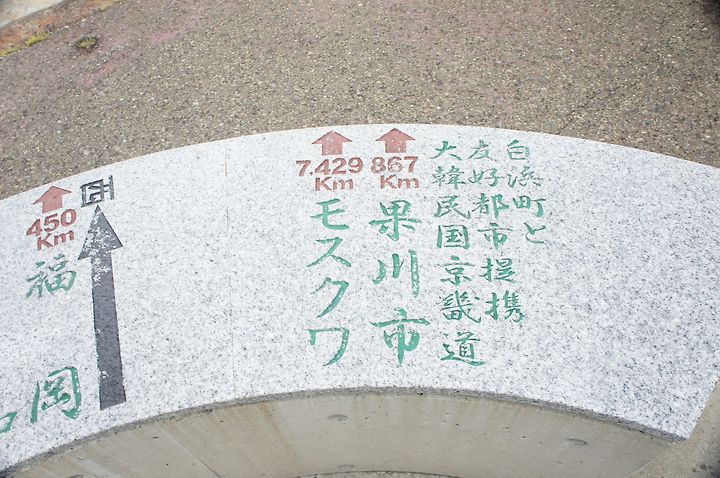 白浜町と
友好都市提携
大韓民国京畿道
867
Km
果川市
7,429
Km
モスクワ
西
450
Km
福岡